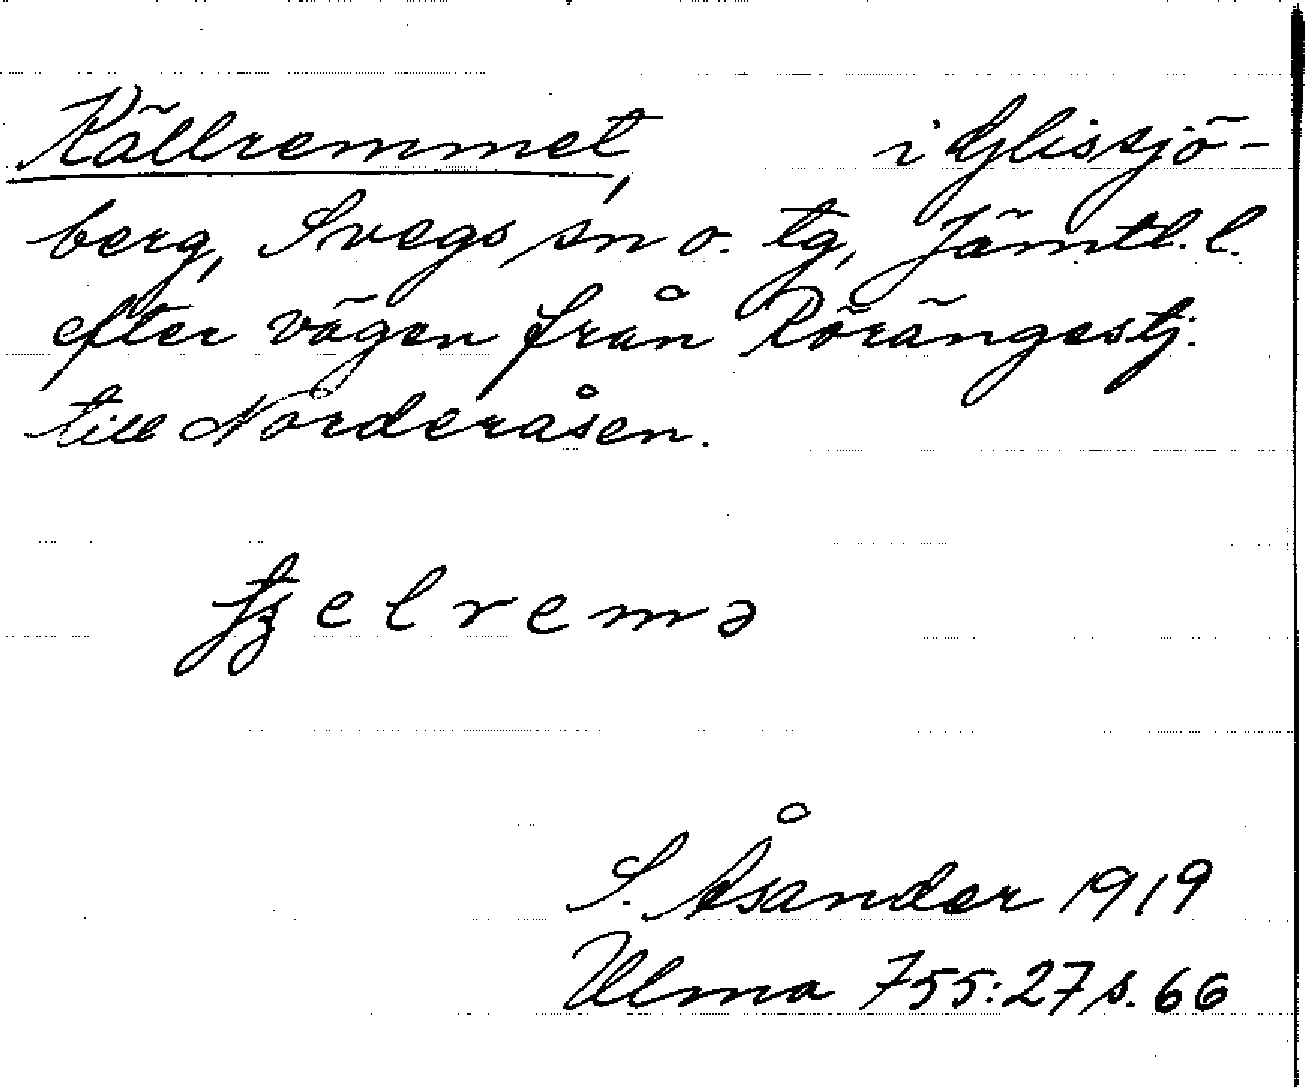 Källremmet, i Glissjö-
berg, Svegs sn o. tg, Jämtl. l.
efter vägen från Rörängestj.
till Norderåsen.
elremə
S. Åsander 1919
Ulma 755:27 s. 66